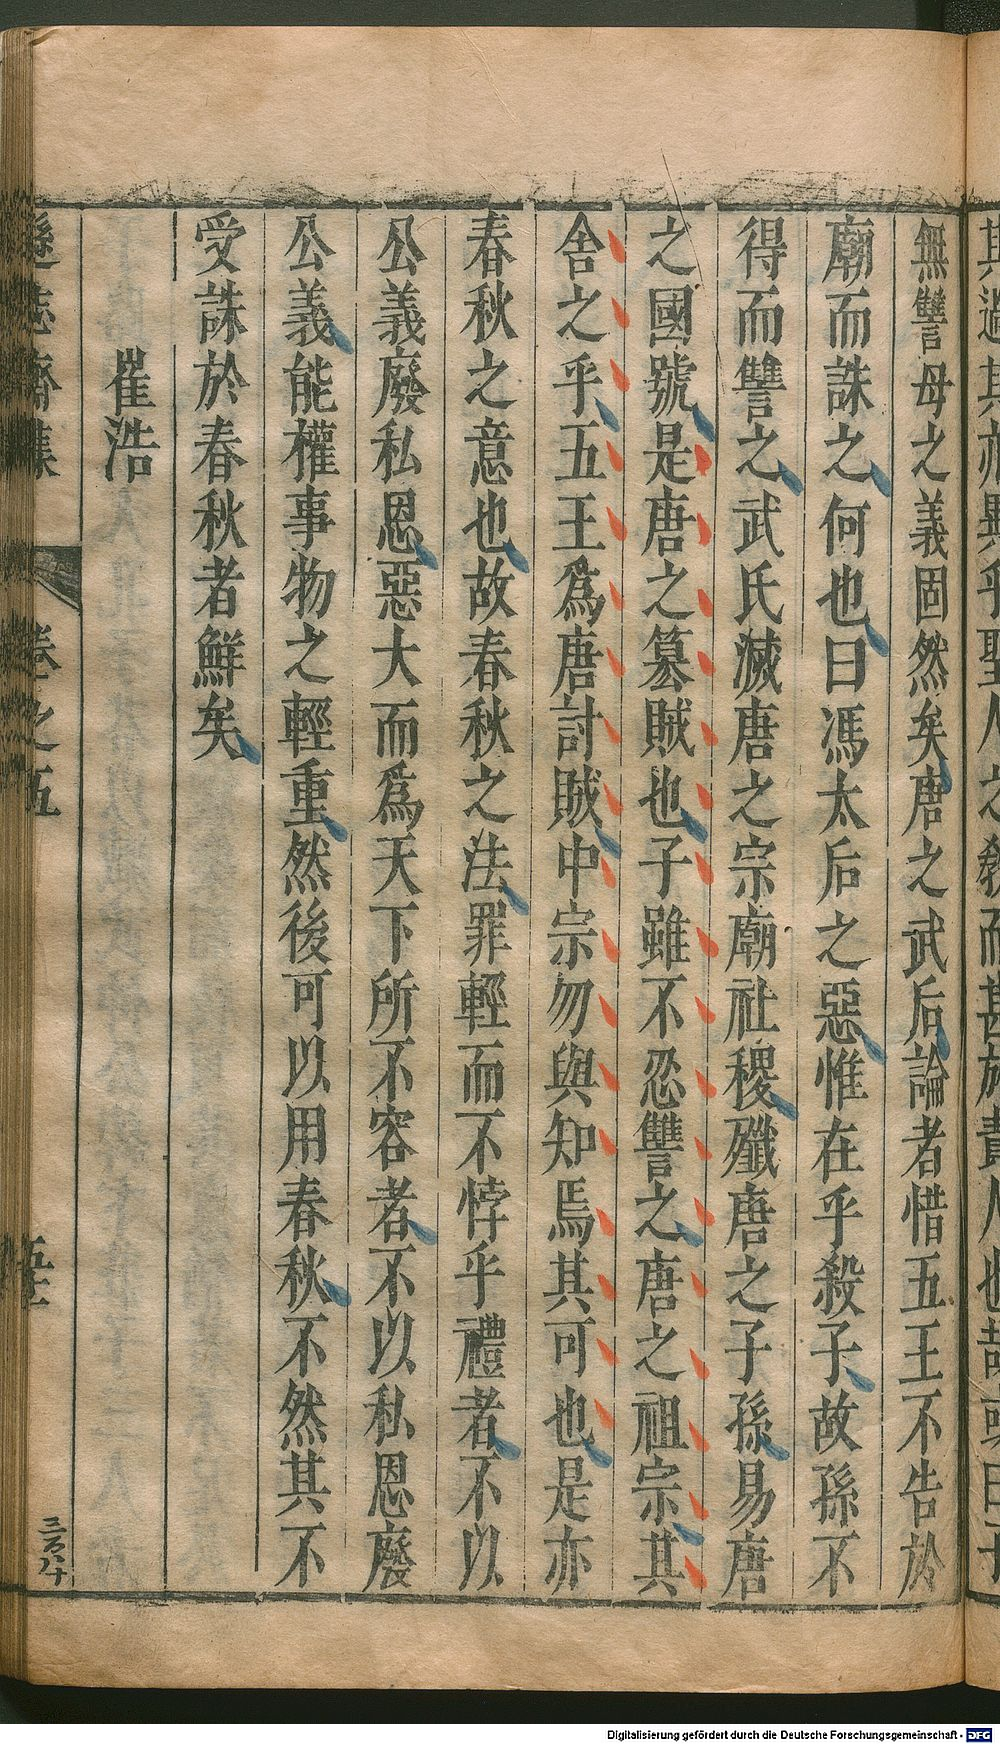 無讐母之義固然矣唐之武后論者惜五王不告於
廟而誅之何也曰馮太后之惡惟在乎殺子故孫不
得而讐之武氏滅唐之宗廟社稷殲唐之子孫易唐
之國號是唐之篡賊也子雖不忍讐之唐之祖宗其
舍之乎五王爲唐討賊中宗勿與知焉其可也是亦
春秋之意也故春秋之法罪輕而不悖乎禮者不以
公義廢私恩惡大而爲天下所不容者不以私恩廢
公義能權事物之輕重然後可以用春秋不然其不
受誅於春秋者鮮矣
崔浩
遜志齋集
卷之五
三百八十
Digitalisierung gefördert durch die Deutsche Forschungsgemeinschaft - DFG